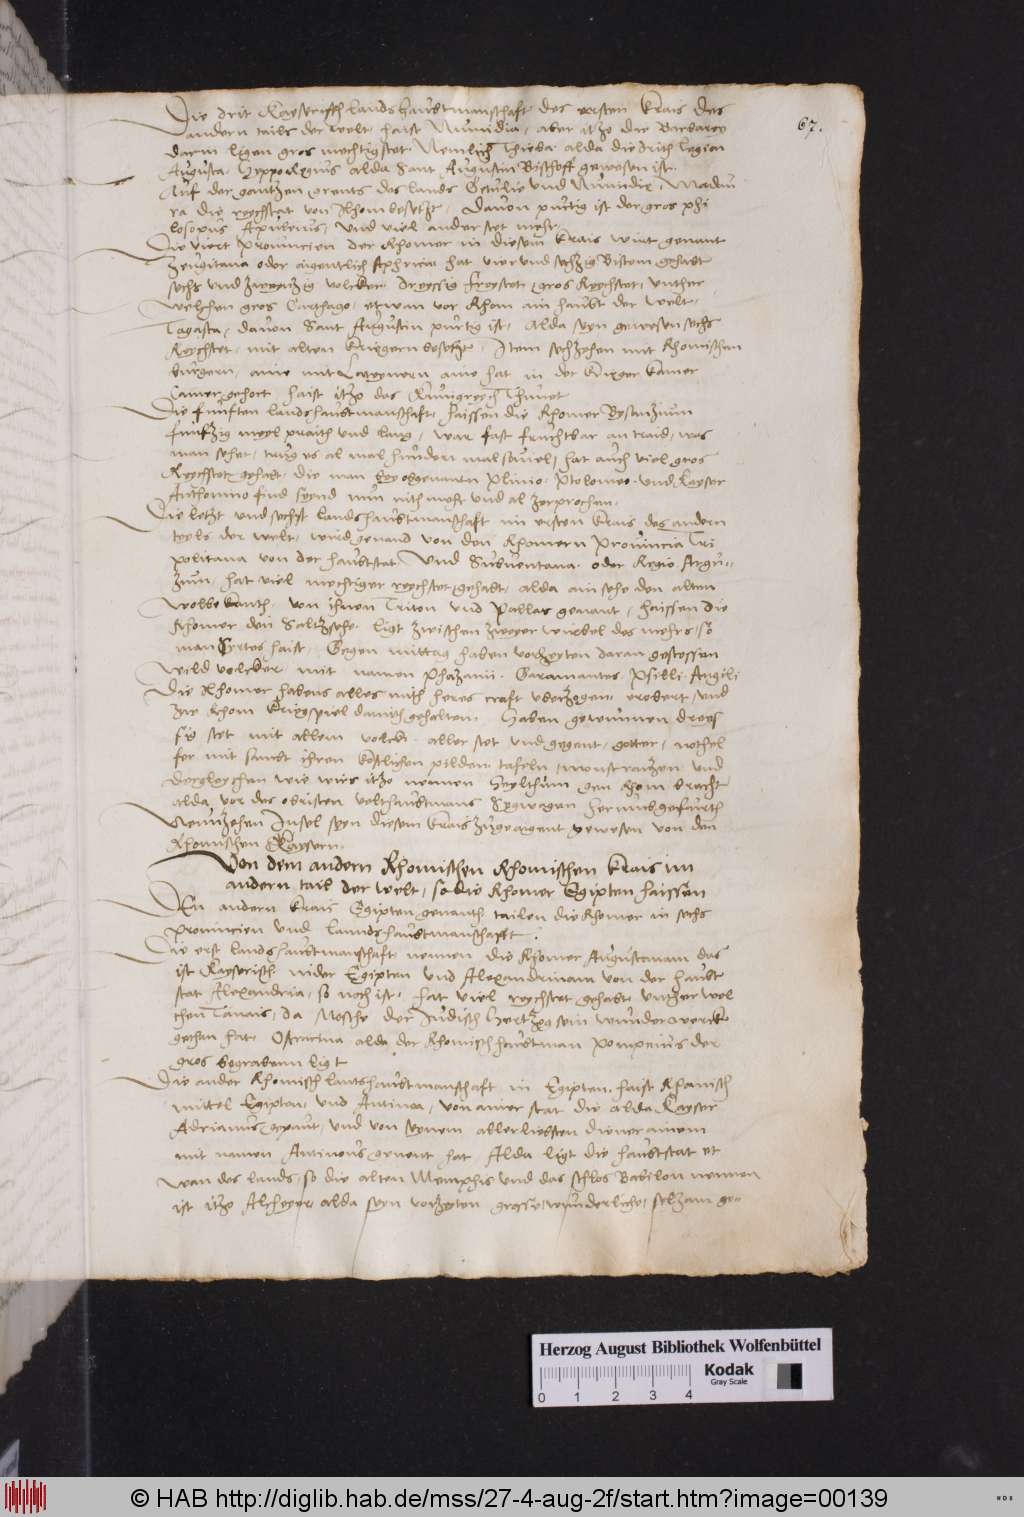 67.
Die drit Kayserisch landshaubtmanschaft des ersten krais des
andern tails der welt haist Numidia, aber itzo die Barbarey
darin ligen gros mechtig stet Nemlich Theba alda die drith legion
Augusta, Hyppo Regius alda Sant Augustin Bischoff gewesen ist.
Auf der gantzen grents des lands Getulie und Numidie, Madau
ra die reychstat von Rhom besetzt, davon purtig ist der gros phi
losopus Apuleius, und viel ander stet mehr
Die viert provincien der Rhomer in diesem krais wirt genant
Zeugitana oder aigentlich Aphrica hat vier und sechzig Bistom gehabt
sechs und zwentzig volcker dreyssig freystet, gros Reychstet, unther
welchen gros Carthago, etwan vor Rhom ain haubt der welt,
Tagasta, davon Sant Augustin purtig ist, alda seyn gewesen sechs
Reychstet, mit alten kriegern besetzt, Item sechzehen mit Rhomischen
burgern, aine mit Lateynern aine hat in der krieger kamer
Camer gehort haist itzo das Kunigreych Thunet
Die funften landshaubtmanschaft, haissen die Rhomer Bysanzium
funfzig meyl praith und lang, war fast fruchtbar an traid, was
man sehet, trug es al mal hundert mal souiel, hat auch viel gros
Reychstet gehabt, die man bey obgenanten Plinio, Ptolomeo und Kayser
Anthonino find seynd nun nith mehr und al zerprochen.
Die letzt und sechst landshaubtmanschaft im ersten krais des andern
teyls der welt, wird genand von den Rhomern Provincia Tri
politana von der haubtstat, Und Subventana oder Regio Argu-
zium, hat viel mechtiger reychstet gehabt, alda ain sehe den alten
wolbekanth, von ihnen Triton und Pallas genant, haissen die
Rhomer den Saltzsehe, ligt zwischen zweyer wurbel des mehrs, so
man Sirtes haist, Gegen mittag haben vorzeyten daran gestossen
wild volcker mit namen Phazanii, Garamantes, Psilli, Augili
Die Rhomer habens alles mith heres craft uberzogen, erobert, und
zue Rhom kriegspiel damith gehalten, haben gewunnen dreis
sig stet mit allem volck, aller stet und gegent, gotter, nothel
fer mit sambt ihren kostlichen pilden, tafeln, monstranzen und
dergleychen wie wirs itzo nennen heylthum gen Rhom bracht
alda vor des obristen velthaubtmans Sygwagen herumb gefurth
Neunzehen Insel seyn diesem krais zugeaigent gewesen von den
Rhomischen Kaysern.
Von dem andern Rhomischen Rhomischen krais im
andern tail der welt, so die Rhomer Egipten haissen
Den andern krais Egipten genanth tailen die Rhomer in sechs
provincien und lanndshaubtmanschafft.
Die erst landshaubtmanschaft nennen die Rhomer Augustanam das
ist Kayserisch nider Egipten und Alexandrinam von der haubt
stat Alexandria, so noch ist, hat viel reychstet gehabt unther wel
chen Tanais, da Moschе der Judisch Hertzog sein wunderwerck
gethan hat, Ostracina alda der Rhomisch haubtman Pompeius der
gros begrabenn ligt
Die ander Rhomisch lantshaubtmanschaft in Egipten haist Rhomisch
mittel Egipten, und Antinoa, von ainer stat die alda Kayser
Adrianus gepaut, und von seynem allerliebsten diener ainem
mit namen Antinous genent hat, Alda ligt die haubtstat et
wan des lands, so die alten Memphis und das schlos Babilon nennen
ist itzo Alcheyer, alda seyn vorzeyten grosse, wunderliche, selzam ge-
Herzog August Bibliothek Wolfenbüttel
Kodak
Gray Scale
0 1 2 3 4
© HAB http://diglib.hab.de/mss/27-4-aug-2f/start.htm?image=00139